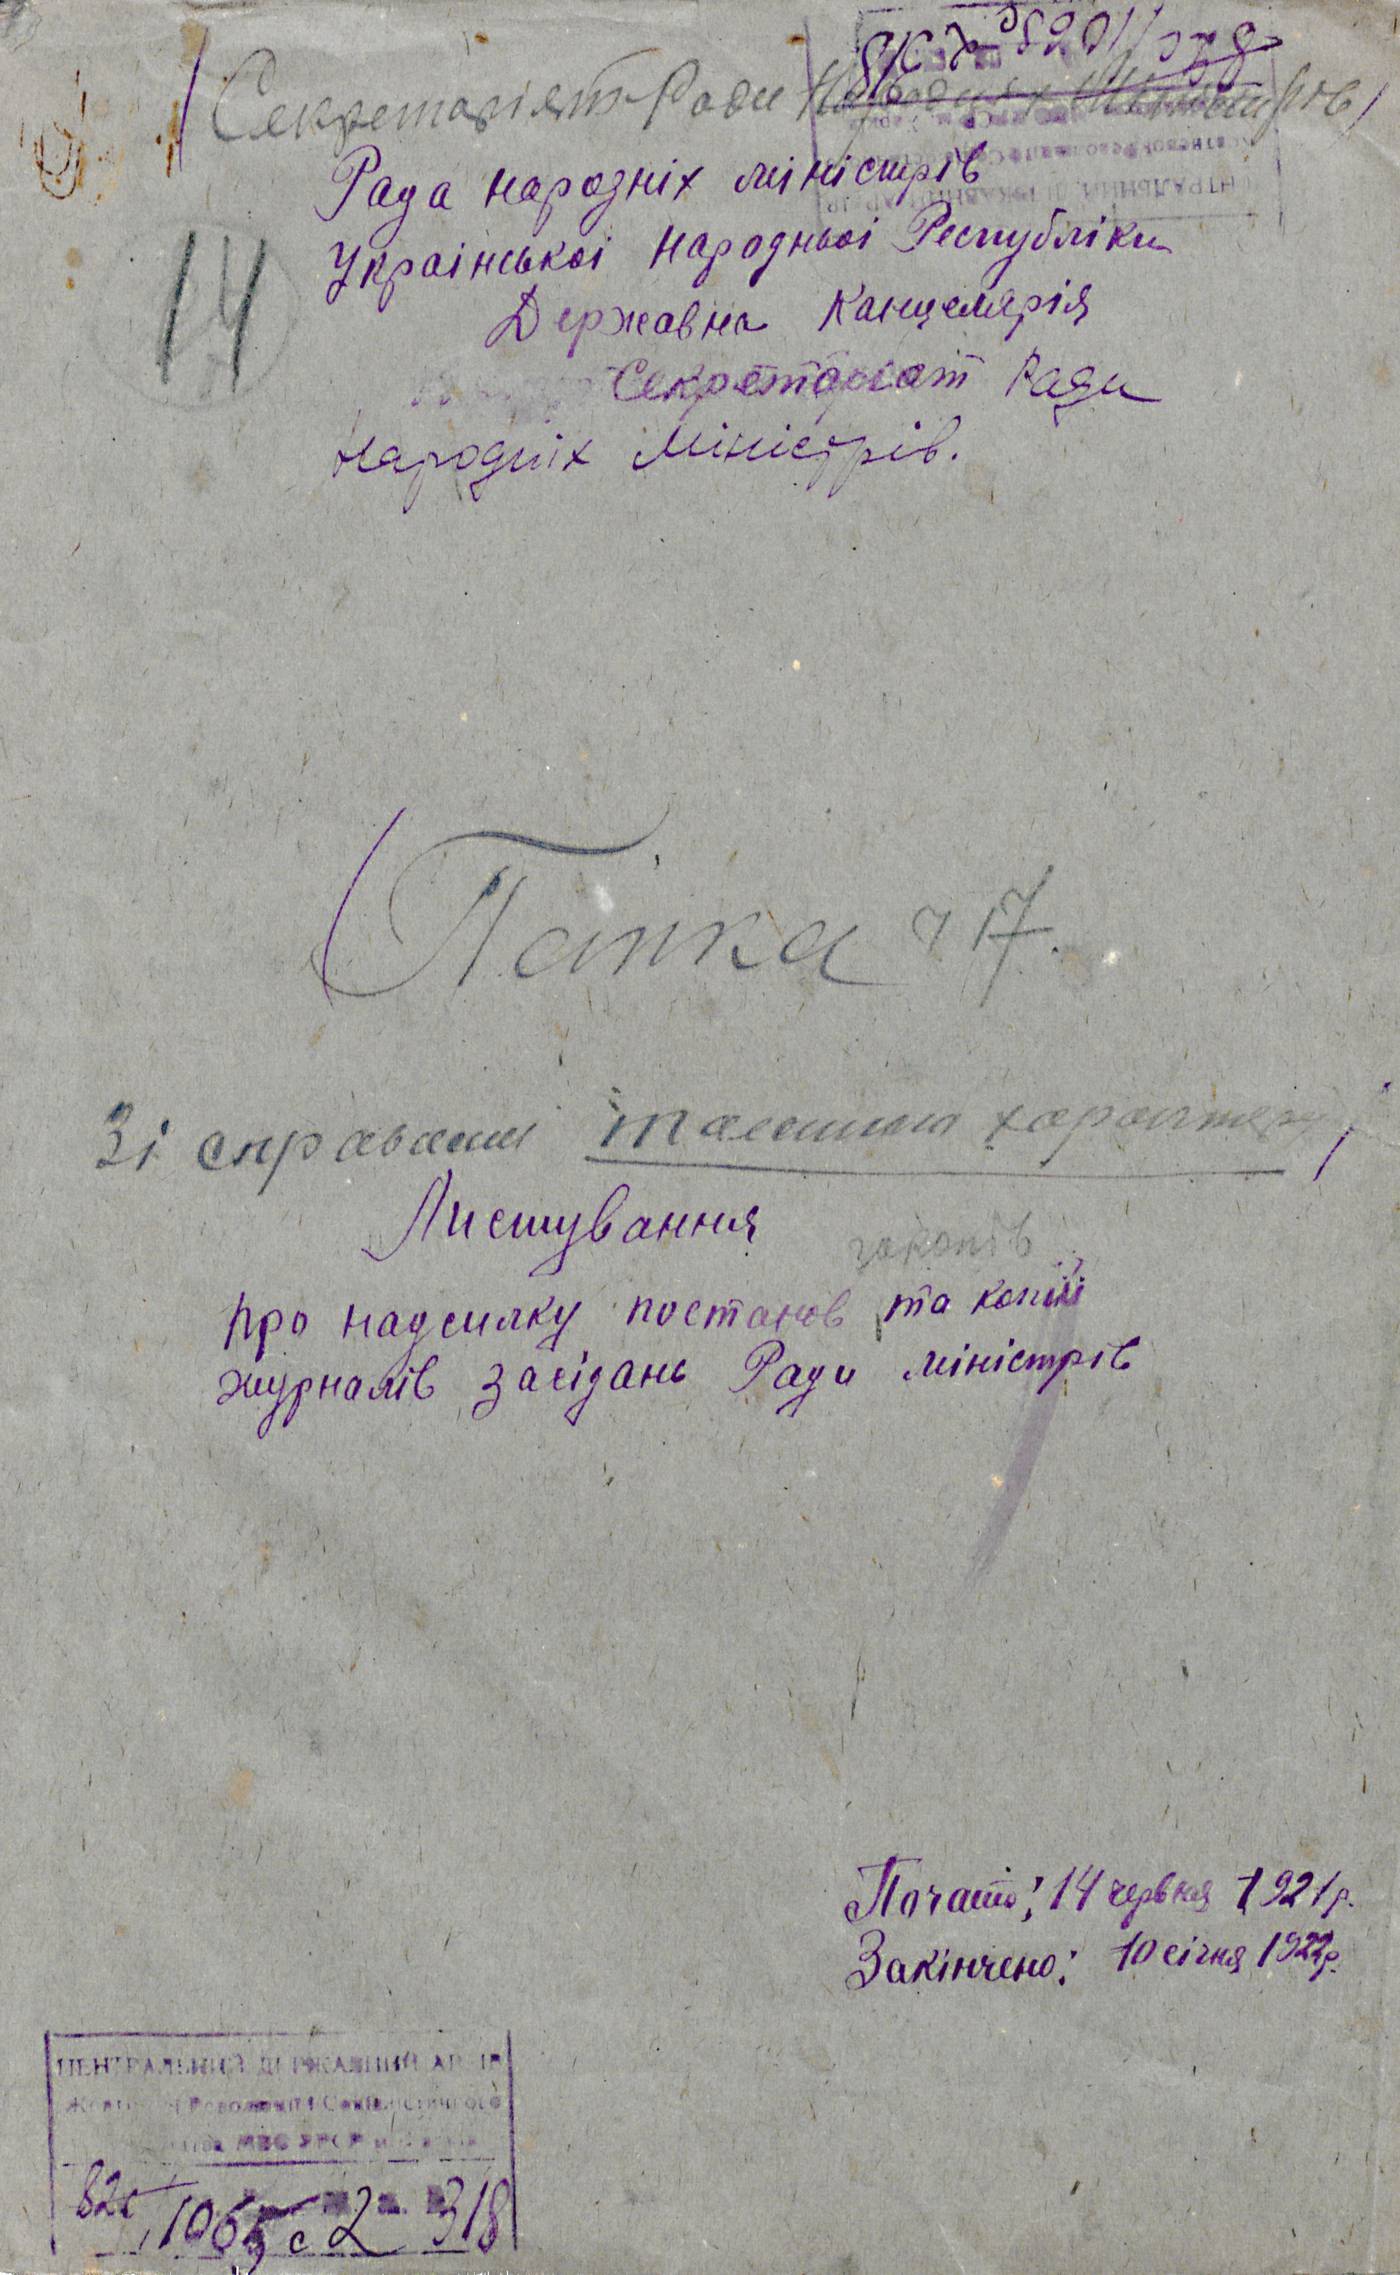 Секретаріят Ради Народних Міністрів
Рада народніх міністрів
Української Народньої Республіки
Державна Канцелярія
Секретаріат Ради
Народніх Міністрів.
14
Папка ч 17.
Зі справами таємного характеру
Листування
законів
про надсилку постанов та копій
журналів засідань Ради міністрів
Почато: 14 червня 1921 р.
Закінчено: 10 січня 1922 р.
ЦЕНТРАЛЬНИЙ ДЕРЖАВНИЙ АРХІВ
Жовтневої Революції і Соціалістичного
МВС УРСР
1065 с 2 318